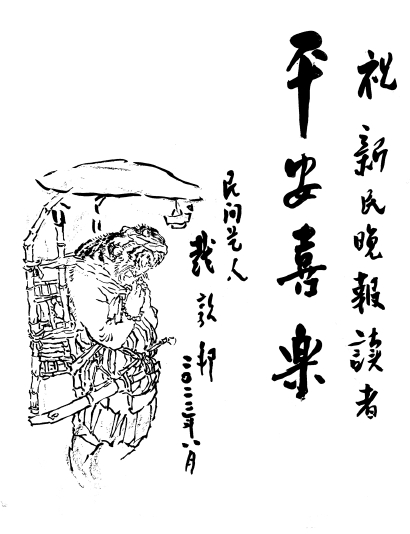 祝新民晚報讀者
平安喜楽
民间艺人
戴敦邦
二〇二三年八月